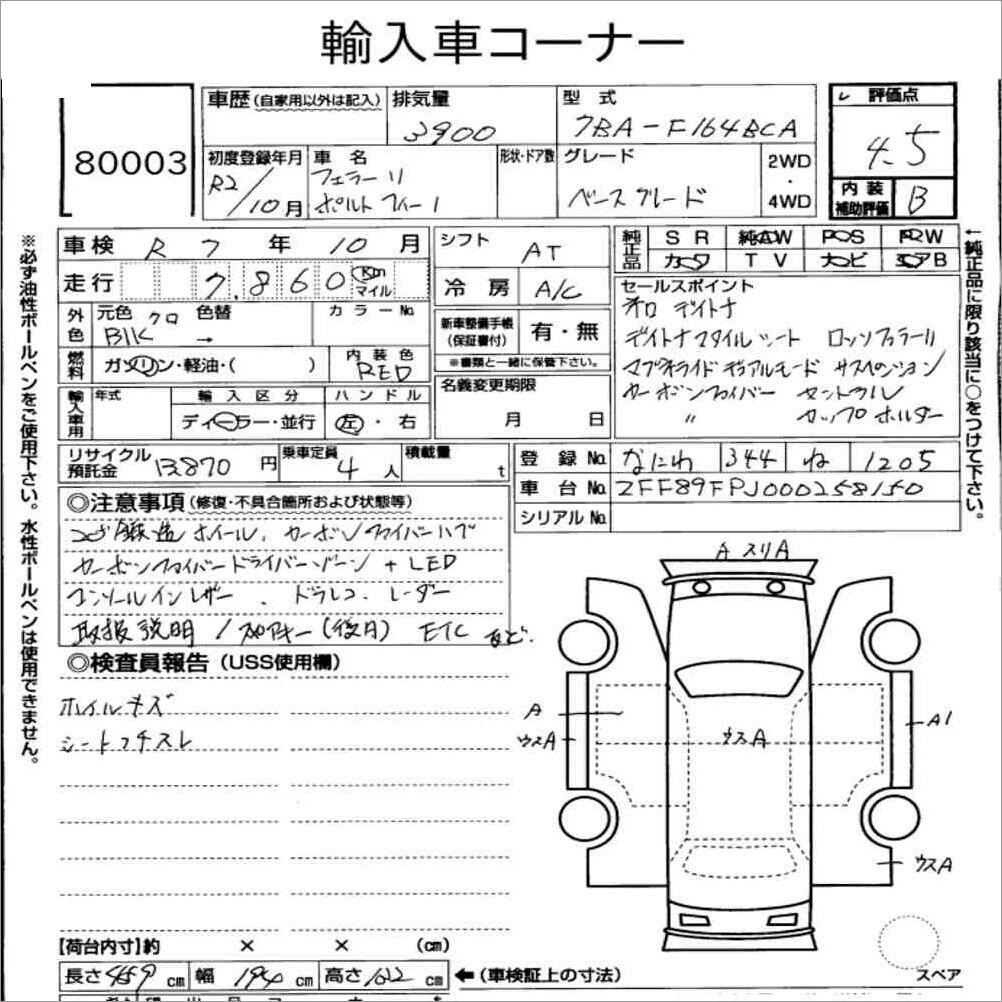 輸入車コーナー
80003
車歴(自家用以外は記入) 排気量 3900 型式 7BA-F164BCA
レ 評価点 4.5
初度登録年月 R2/10月 車名 フェラーリ ポルトフィーノ 形状・ドア数 グレード ベースグレード 2WD・4WD
内装補助評価 B
※必ず油性ボールペンをご使用下さい。水性ボールペンは使用できません。
車検 R7年10月
走行 7.860 Km マイル
外色 元色 クロ 色替 カラーNo.
Blk →
燃料 ガソリン・軽油・( ) 内装色 RED
輸入車用 年式 輸入区分 ディーラー・並行 ハンドル 左・右
シフト AT
冷房 A/C
新車整備手帳(保証書付) 有・無
※書類と一緒に保管下さい。
名義変更期限
月 日
純正品 SR 純正AW PS PW
カワ TV ナビ エアB
セールスポイント
デイトナスタイルシート ロッソフェラーリ
マグネライドデュアルモードサスペンション
カーボンファイバー セントラル
〃 カップホルダー
←純正品に限り該当に○をつけて下さい。
リサイクル預託金 13870円 乗車定員 4人 積載量 t
登録No. なにわ 344 ね 1205
車台No. ZFF89FPJ000258150
シリアルNo.
◎注意事項(修復・不具合箇所および状態等)
鍛造ホイール、カーボンファイバーハブ
カーボンファイバードライバーゾーン+LED
コンソールインレザー、ドラレコ、レーダー
取扱説明/スペアキー(後日) ETC など.
◎検査員報告(USS使用欄)
ホイルキズ
シートフチスレ
AスリA
A
ウスA
ウスA
A1
ウスA
スペア
【荷台内寸】約 × × (cm)
長さ 459 cm 幅 194 cm 高さ 132 cm ←(車検証上の寸法)